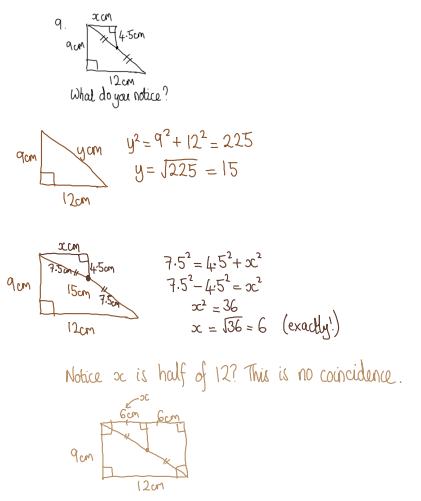 9.
xcm
9cm
4.5cm
12cm
What do you notice?
9cm
ycm
12cm
y² = 9² + 12² = 225
y = √225 = 15
xcm
7.5cm
4.5cm
9cm
15cm
7.5cm
12cm
7.5² = 4.5² + x²
7.5² - 4.5² = x²
x² = 36
x = √36 = 6 (exactly!)
Notice x is half of 12? This is no coincidence.
x
6cm
6cm
9cm
12cm